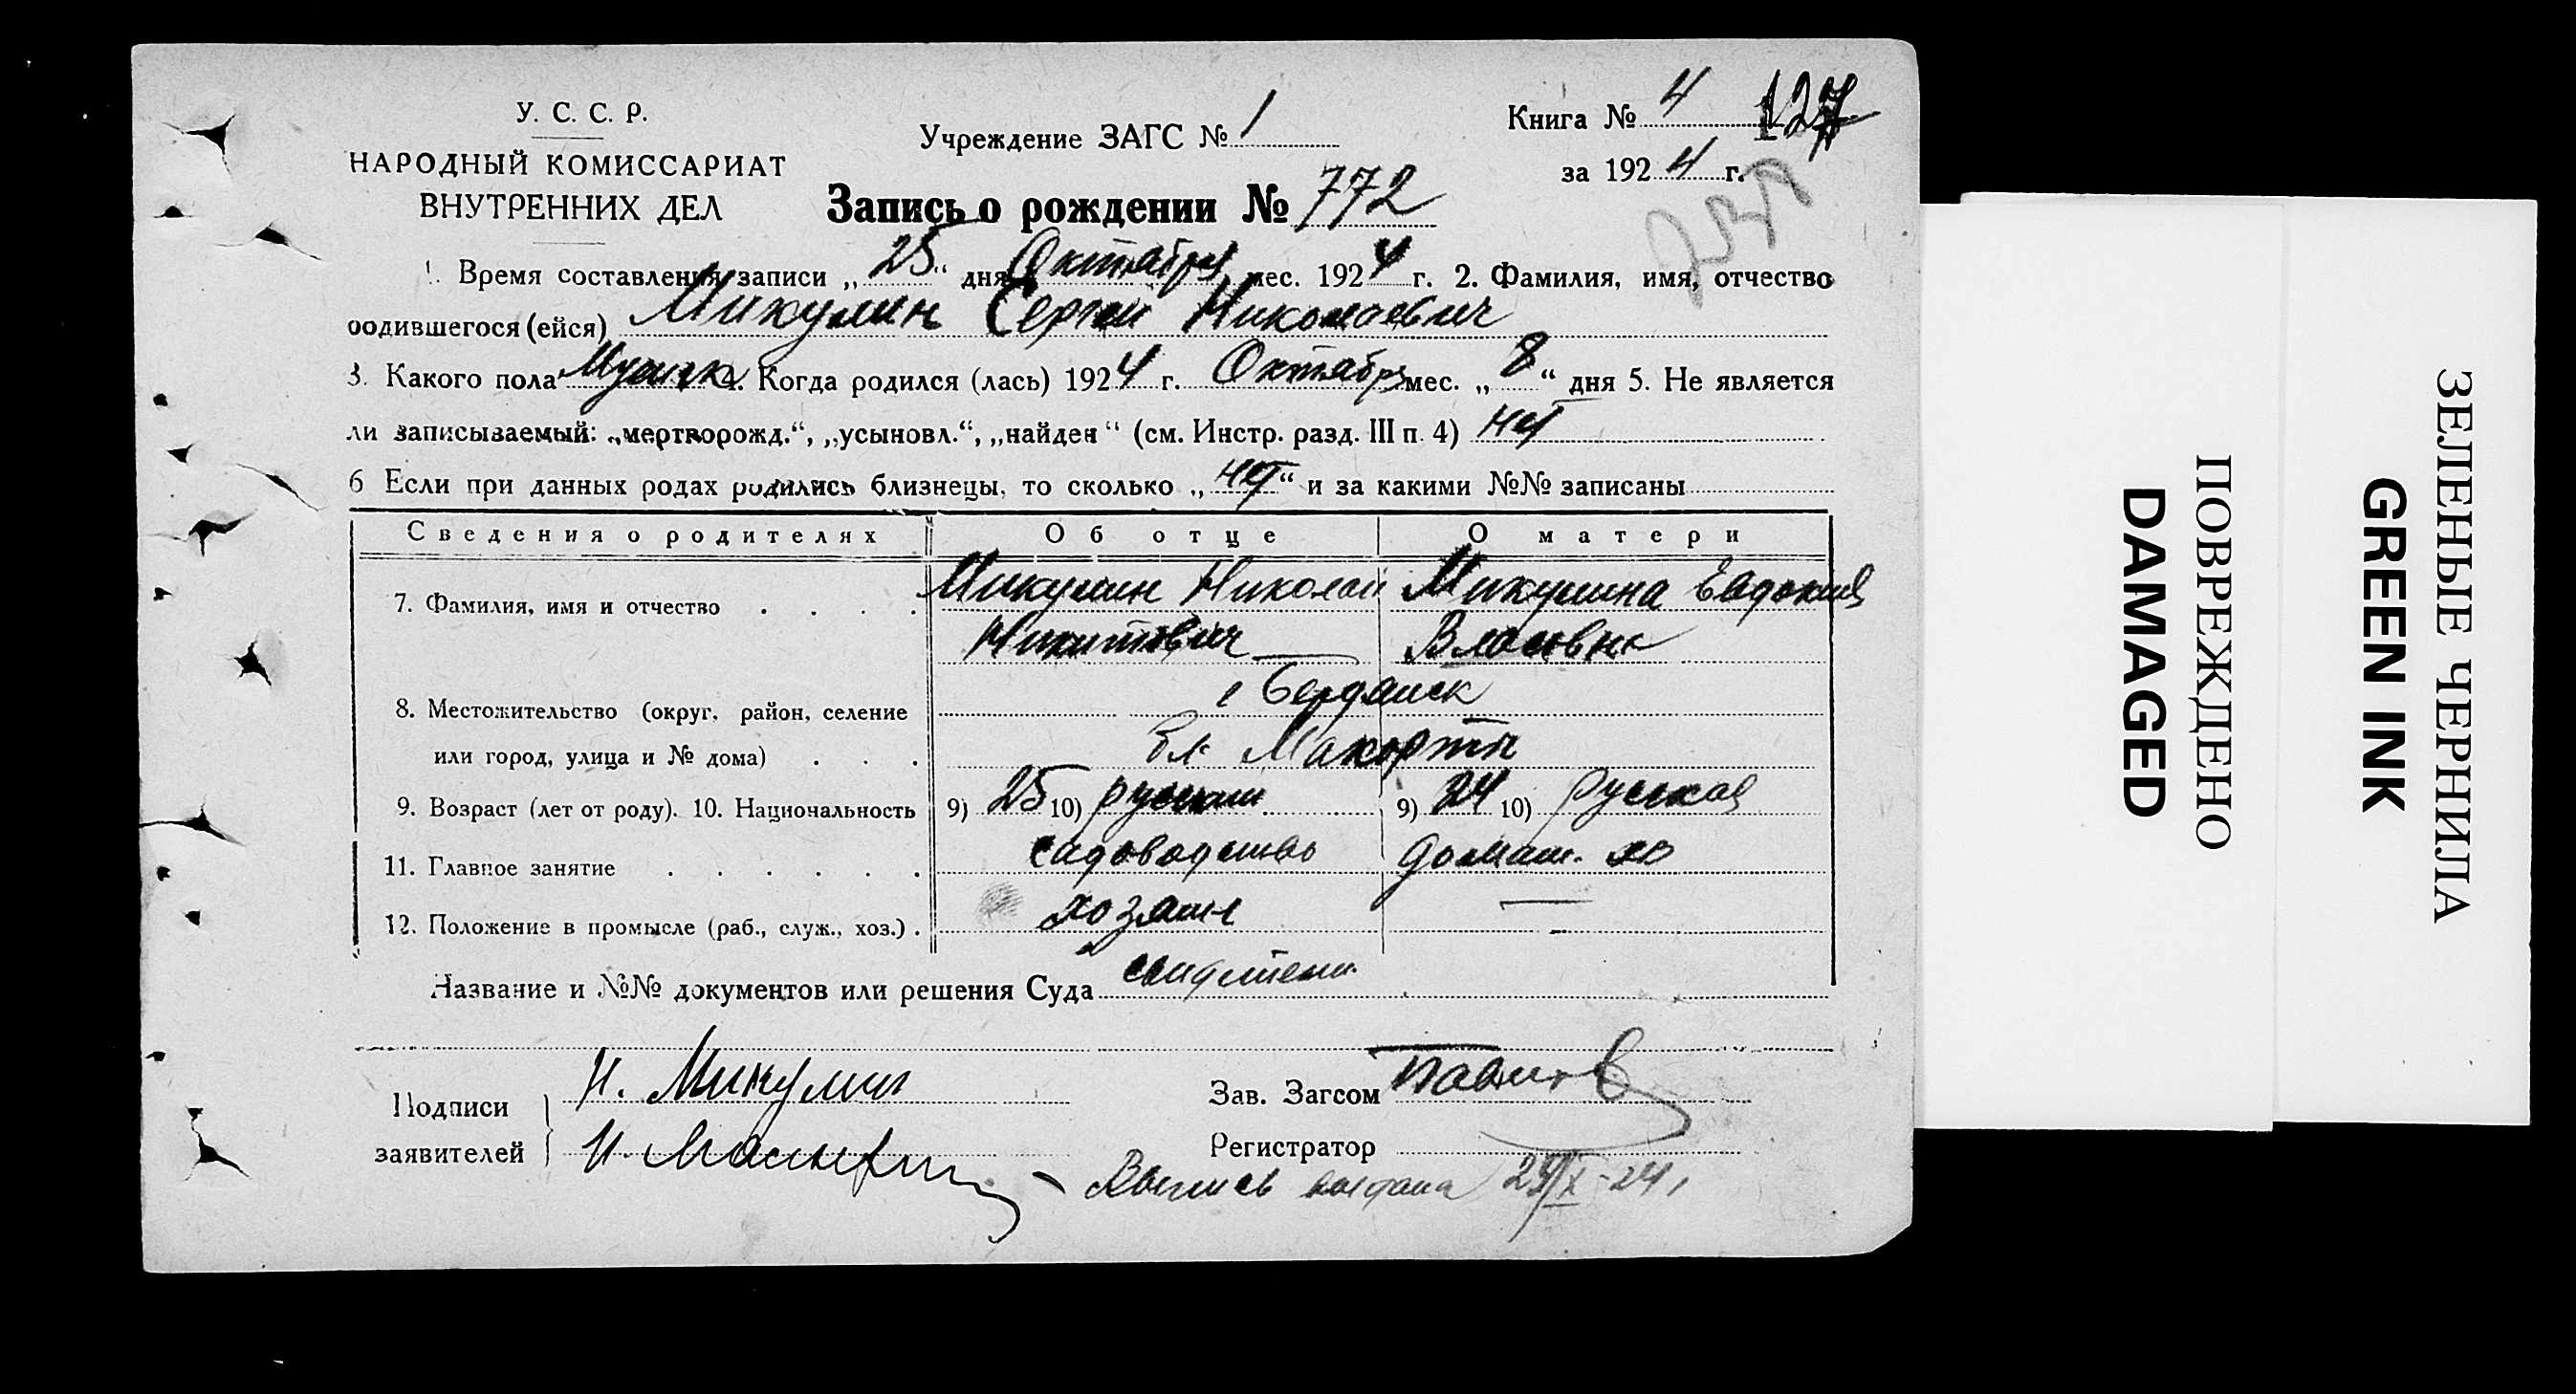 У. С. С. Р.
НАРОДНЫЙ КОМИССАРИАТ
ВНУТРЕННИХ ДЕЛ
Учреждение ЗАГС № 1
Книга № 4 127
за 1924 г.
Запись о рождении № 772
1. Время составления записи „25“ дня Октября мес. 1924 г. 2. Фамилия, имя, отчество
родившегося (ейся) Микулин Сергей Николаевич
3. Какого пола Мужск 4. Когда родился (лась) 1924 г. Октября мес. „8“ дня 5. Не является
ли записываемый: „мертворожд.“, „усыновл.“, „найден“ (см. Инстр. разд. III п. 4) нет
6 Если при данных родах родились близнецы, то сколько „нет“ и за какими №№ записаны
Сведения о родителях Об отце О матери
7. Фамилия, имя и отчество . . . . Микулин Николай Микулина Евдокия
Никитович Власовна
8. Местожительство (округ, район, селение г Бердянск
или город, улица и № дома) . . . Макорты
9. Возраст (лет от роду). 10. Национальность 9) 25 10) руский 9) 24 10) руская
11. Главное занятие . . . . . . садоводство домаш. хо
12. Положение в промысле (раб., служ., хоз.) . хозяин —
Название и №№ документов или решения Суда
Подписи
заявителей
Н. Микулин
Зав. Загсом
Регистратор
Выпись выдана
ПОВРЕЖДЕНО
DAMAGED
ЗЕЛЕНЫЕ ЧЕРНИЛА
GREEN INK